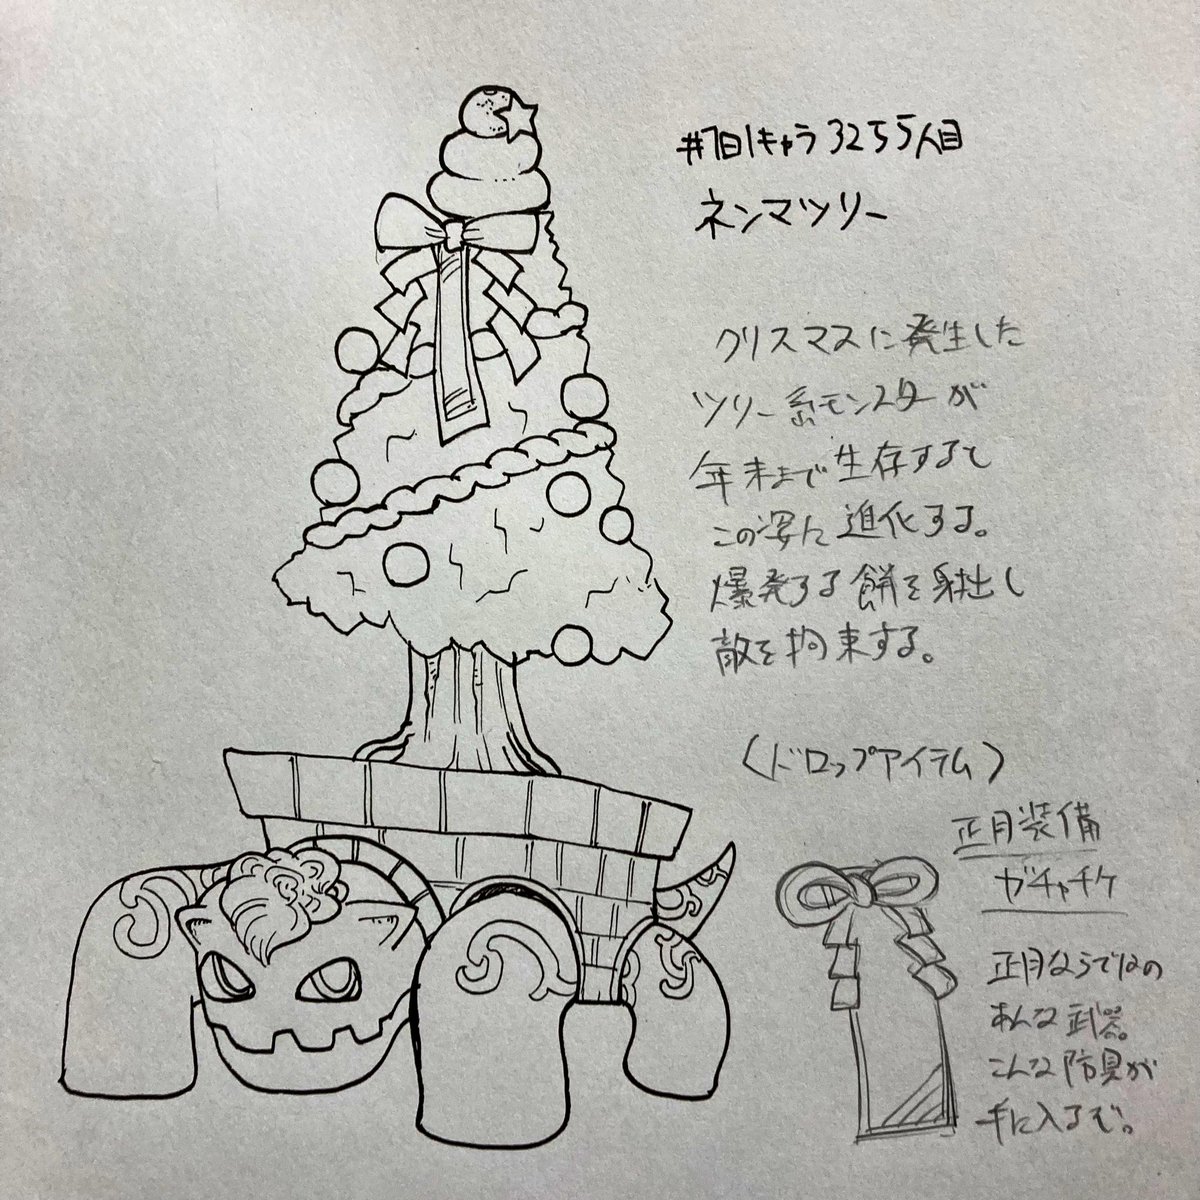 #1日1キャラ3255人目
ネンマツリー
クリスマスに発生した
ツリー系モンスターが
年末まで生存すると
この姿に進化する。
爆発する餅を射出し
敵を拘束する。
〈ドロップアイテム〉
正月装備
ガチャチケ
正月ならではの
あんな武器。
こんな防具が
手に入るぞ。